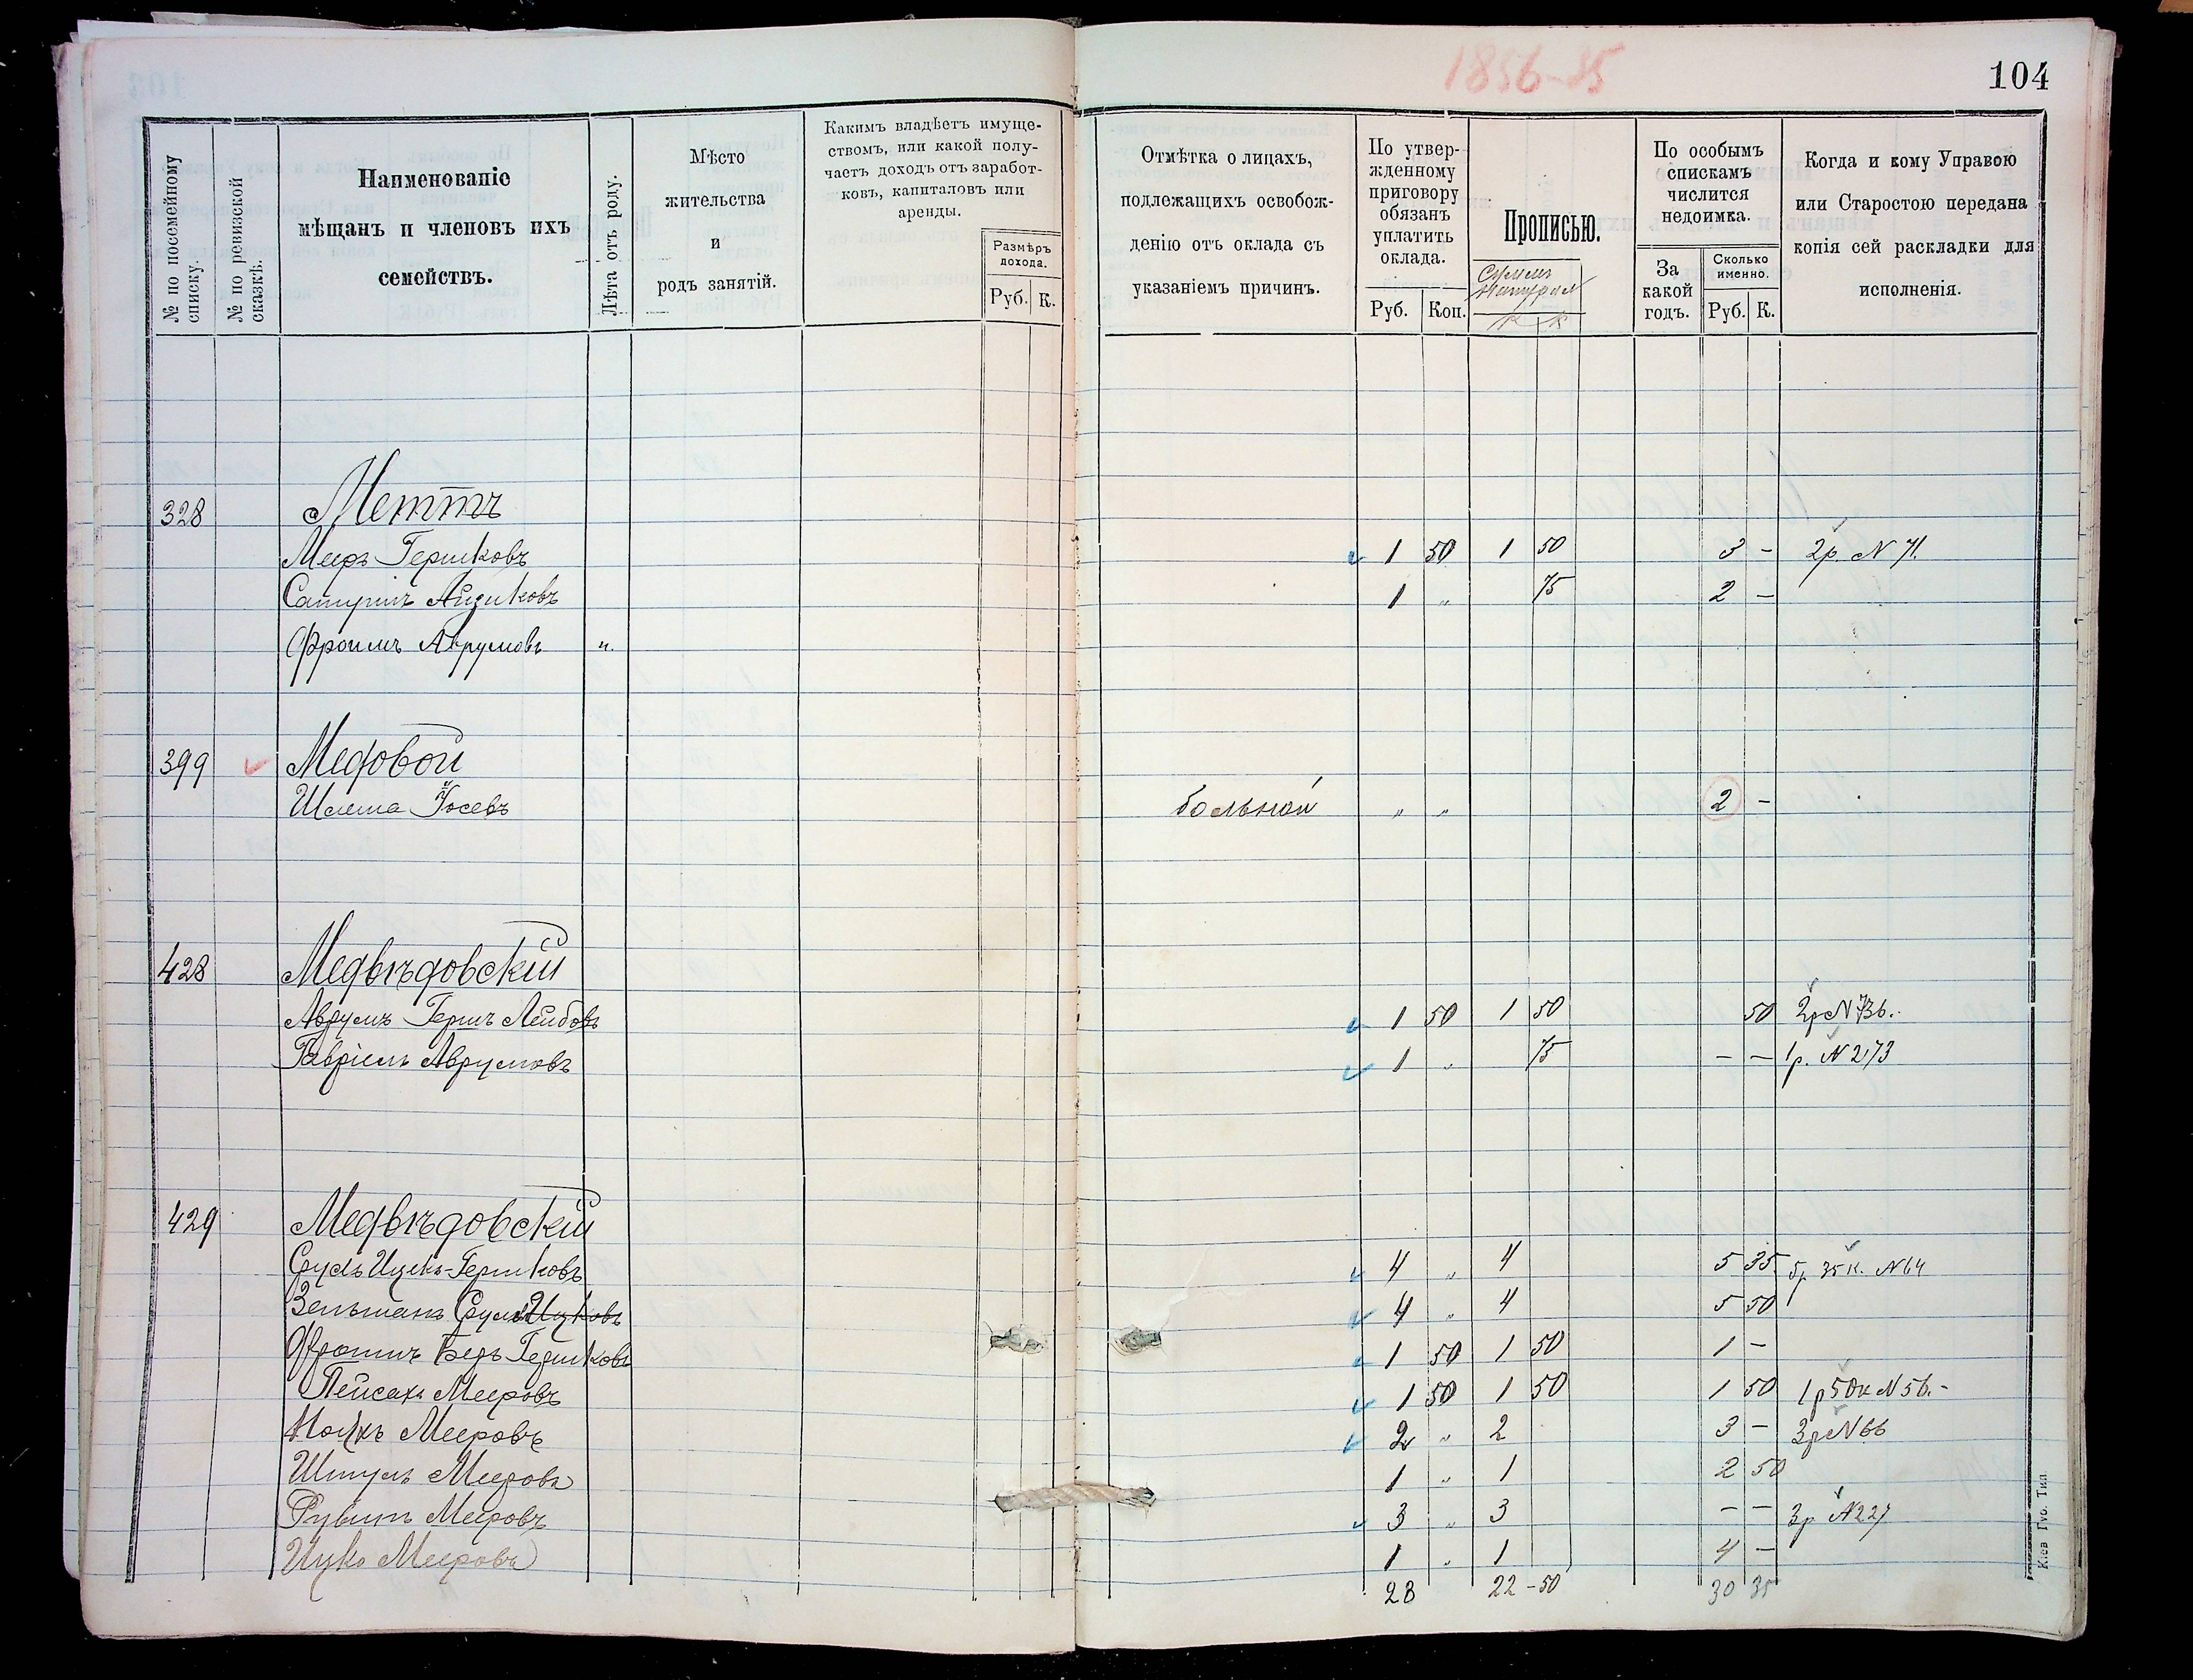 1856-35
104
№ по посемейному списку.
№ по ревизской сказкѣ.
Наименованіе
мѣщанъ и членовъ ихъ
семействъ.
Лѣта отъ роду.
Мѣсто
жительства
и
родъ занятій.
Какимъ владѣетъ имуще-
ствомъ, или какой полу-
чаетъ доходъ отъ заработ-
ковъ, капиталовъ или
аренды.
Размѣръ
дохода.
Руб. К.
Отмѣтка о лицахъ,
подлежащихъ освобож-
денію отъ оклада съ
указаніемъ причинъ.
По утвер-
жденному
приговору
обязанъ
уплатить
оклада.
Руб. Коп.
Прописью.
По особымъ
спискамъ
числится
недоимка.
За
какой
годъ.
Сколько
именно.
Руб. К.
Когда и кому Управою
или Старостою передана
копія сей раскладки для
исполненія.
328 Меттъ
Меерь Гершковъ 1 50 1 50 3 - 2р. N 71.
Айзиковъ 1 " 75 2 -
Фроимъ Аврумовъ ч.
399 Медовой
Шлема Іосевъ больной " " 2 -
428 Медвѣдовскій
Аврумъ Гершъ Лейбовъ 1 50 1 50 50 2р N
Гавріель Аврумовъ 1 " 75 - - 1р. N 273
429 Медвѣдовскій
Сруль Ицекъ-Гершковъ 4 " 4 5 35 5р 35 к. N 64
Зельманъ Срулевъ Ицковъ 4 " 4 5 50
Фроимъ Беръ Гершковъ 1 50 1 50 1 -
Пейсахъ Мееровъ 1 50 1 50 1 50 1р 50к N 56.-
Мееровъ 2 " 2 3 - 3р N 66
Шмуль Мееровъ 1 " 1 2 50
Рувинъ Мееровъ 3 " 3 - - 3р N 227
Ицко Мееровъ 1 " 1 4 -
23 22-50 30 35
Кіев. Губ. Тип.